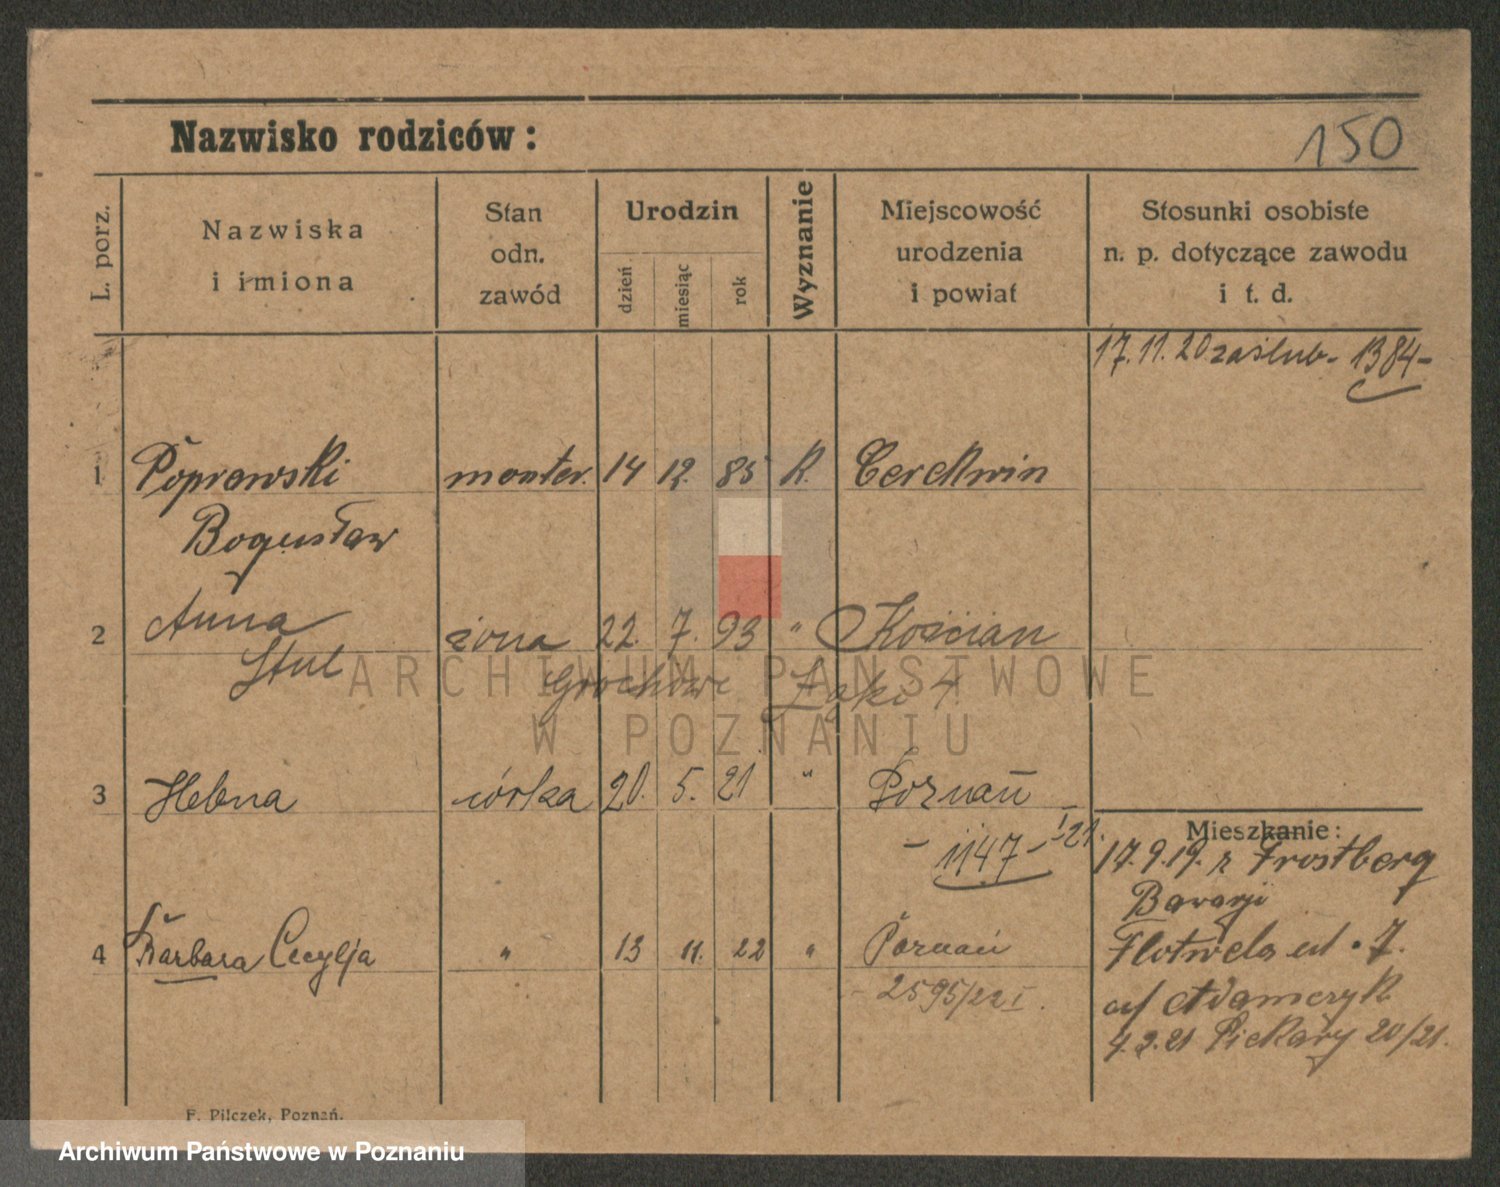 Nazwisko rodziców:
150
L. porz.
Nazwiska
i imiona
Stan
odn.
zawód
Urodzin
dzień
miesiąc
rok
Wyznanie
Miejscowość
urodzenia
i powiat
Stosunki osobiste
n. p. dotyczące zawodu
i t. d.
17.11.20 zaślub- 1384-
1 Poprawski monter. 14 12. 85 K. Cerekwin
Bogusław
2 Anna żona 22. 7. 93 " Kościan
Stul
Grochowe Łąki 7.
ARCHIWUM PAŃSTWOWE
W POZNANIU
3 Helena córka 20. 5. 21 " Poznań
- 1147 - I 21.
Mieszkanie:
17.9.19. z Trostberg
Bawarji
4 Barbara Cecylja " 13 11. 22 " Poznań
2595/22 I.
Flotwela ul. 7.
u/ Adamczyk
4.2.21 Piekary 20/21.
F. Pilczek, Poznań.
Archiwum Państwowe w Poznaniu